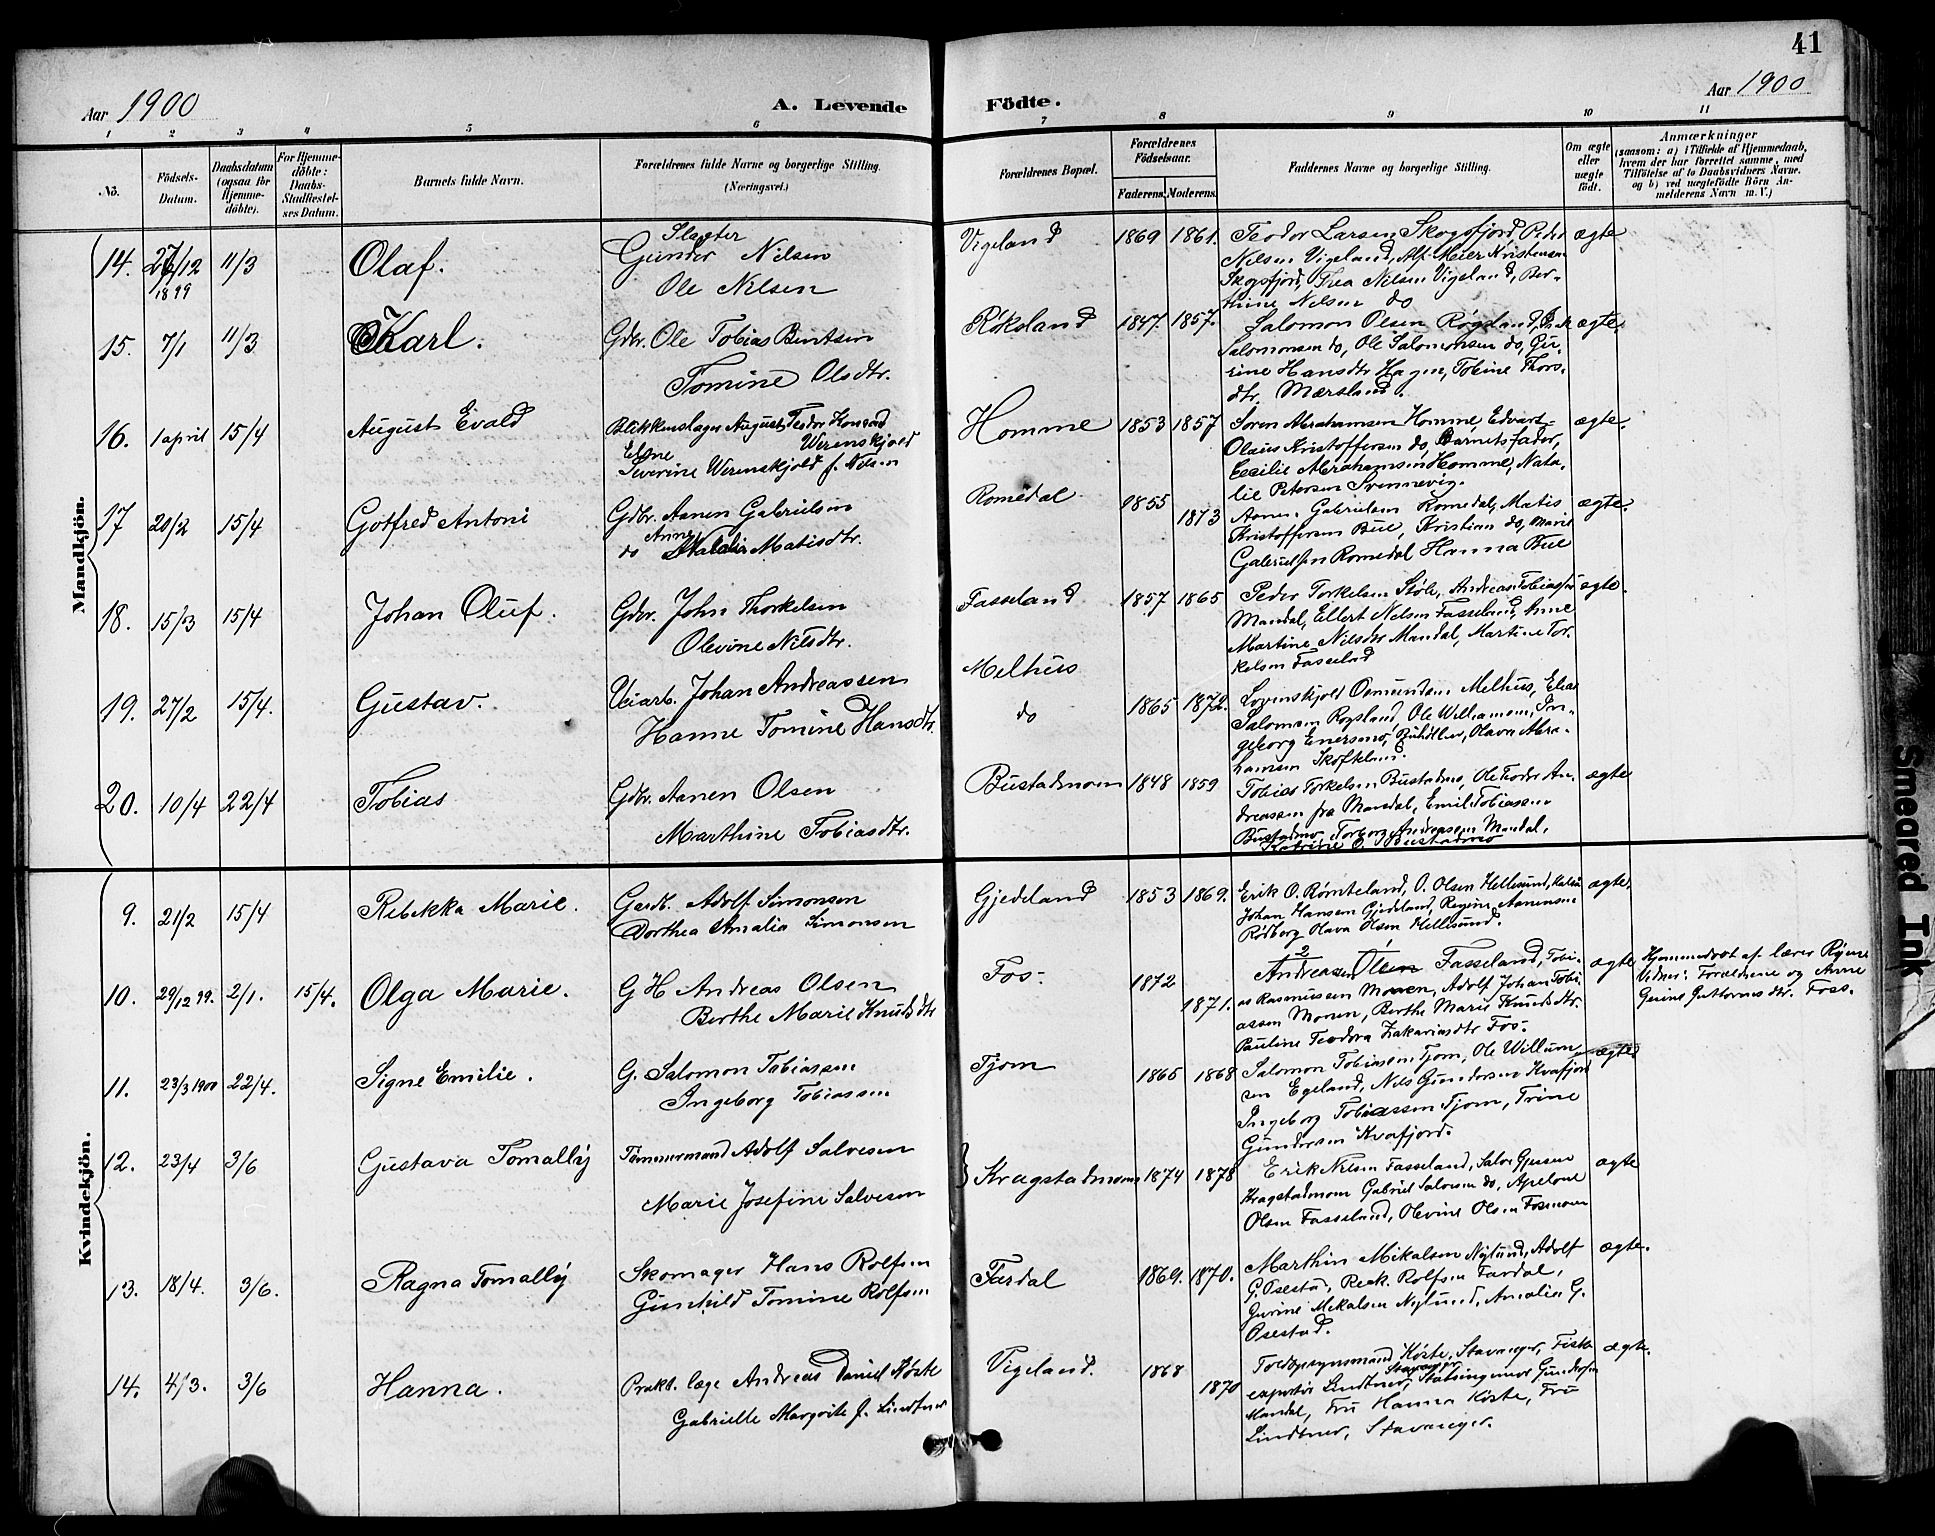 41
Aar 1900
A. Levende
Födte.
Aar 1900
1 2 3 4 5 6 7 8 9 10 11
No.
Födsels-
Datum.
Daabsdatum
(ogsaa for
Hjemme-
döbte).
For Hjemme-
döbte:
Daabs-
Stadfæstel-
ses Datum.
Barnets fulde Navn.
Forældrenes fulde Navne og borgerlige Stilling.
(Næringsvei.)
Forældrenes Bopæl.
Forældrenes
Födselsaar.
Faderens.
Moderens.
Faddernes Navne og borgerlige Stilling.
Om ægte
eller
uægte
födt.
Anmærkninger
(saasom: a) i Tilfælde af Hjemmedaab,
hvem der har forrettet samme, med
Tilföielse af to Daabsvidners Navne.
og b) ved uægtefödte Börn An-
melderens Navn m. V.)
Mandkjön.
14. 27/12 1899 11/3 Olaf.
Slagter
Gunder Nilsen
Ole Nilsen
Vigeland 1869 1861.
Teodor Larsen Skogsfjord Peder
Nilsen Vigeland, Alf Meier Kristensen
Skogsfjord, Trea Nilsen Vigeland, Ber-
thine Nilsen do
ægte
15. 7/1 11/3 Karl.
Gdbr. Ole Tobias Bentsen
Tomine Olsdtr.
Røksland 1847. 1857.
Salomon Olsen Røgsland,
Salomonsen do, Ole Salomonsen do, Gu-
rine Hansdtr Hagen, Tobine Thors-
dtr. Mærsland.
ægte.
16. 1 april 15/4 August Evald
Blikkenslager August Teodor Konrad
Werenskjold
Elene
Severine Werenskjold f. Nilsen
Homme 1853 1857
Søren Abrahamsen Homme, Edvart
Olaus Kristoffersen do, Barnets fader,
Cecilie Abrahamsen Homme, Nata-
lie Petersen Svennevig.
ægte.
17 20/2 15/4 Gotfred Antoni
Gdbr. Aanen Gabrielsen
Anne
do Natalie Matisdtr.
Romedal 1855 1873
Aanen Gabrielsen Romedal, Matis
Kristoffersen Bue, Kristian do, Marie
Gabrielsen Romedal Hanna Bue
ægte.
18. 15/3 15/4 Johan Oluf.
Gdbr. John Thorkelsen
Olevine Nilsdtr.
Fasseland 1857 1865
Peder Torkelsen Støle, Andreas Tobiassen
Mandal, Ellert Nilsen Fasseland, Anne
Martine Nilsdtr Mandal, Martine Tor-
kelsen Fasseland
ægte.
19. 27/2 15/4. Gustav.
Veiarb. Johan Andreassen
Hanne Tomine Hansdtr.
Melhus
do 1865 1872.
Lovenskjold Osmundsen Melhus, Elias
Salomsen Rogsland, Ole Williamsen, In-
geborg Enersmo, Olava Abra-
hamsen Skofteland.
20. 10/4 22/4 Tobias
Gdbr. Aanen Olsen
Marthine Tobiasdtr.
Bustadmoen 1848 1859
Tobias Torkelsen Bustadmo, Ole Teodor An-
dreassen fra Mandal, Emil Tobiassen
Bustadmo, Torborg Andreassen Mandal,
Katrine O. Bustadmo
ægte
Kvindekjön.
9. 21/2 15/4 Rebekka Marie.
Gardb. Adolf Simonsen
Dorthea Amalia Simonsen
Gjedeland 1853 1869.
Erik O. Rømteland, O. Olsen Hellesund,
Johan Hansen Gjedeland, Regine Aanensen
Rødberg Olava Olsen Hellesund.
ægte.
10. 29/12 99. 2/1. 15/4. Olga Marie.
G H Andreas Olsen
Berthe Marie Knudsdtr
Fos. 1872 1871.
2 1
Andreassen Olsen Fasseland, Tobi-
as Rasmussen Monen, Adolf Johan Tobi-
assen Monen, Berthe Marie Knudsdtr.
Pauline Teodora Zakariasdtr Fos.
ægte
Hjemmedøbt af lærer
Vidner: Forældrene og Anne
Gurine Guttormsdtr. Foss.
11. 23/3 1900 22/4. Signe Emilie.
G. Salomon Tobiassen
Ingeborg Tobiassen
Tjom 1865 1868
Salomon Tobiassen Tjom, Ole Willum-
sen Egeland, Nils Gundersen Kvafjord
Ingeborg Tobiassen Tjom, Trine
Gundersen Kvafjord.
ægte
12. 23/4 3/6 Gustava Tomally
Tømmermand Adolf Salvesen
Marie Josefine Salvesen
Kragstadmoen 1874 1878
Erik Nilsen Fasseland, Salve Gjersen
Kragstadmoen Gabriel Salvesen do, Apelone
Olsen Fasseland, Olevine Olsen Fosmoen
ægte
13. 18/4. 3/6. Ragna Tomally
Skomager Hans Rolfsen
Gunhild Tomine Rolfsen
Fardal 1869. 1870.
Marthin Mikalsen Nylund, Adolf
G. Osestad, Reck. Rolfsen Fardal,
Gurine Mikalsen Nylund, Amalia G.
Osestad.
ægte.
14. 4/3. 3/6 Hanna.
Prakt. læge Andreas Daniel Køste
Gabrielle Margrite f. Lindtner
Vigeland. 1868 1870
Toldopsynsmand Køste, Stavanger, Fiske
Stavanger
exportør Lindtner, Statsingeniør Gundersen
Mandal, Fru Hanna Køste, Fru
Lindtner, Stavanger.
ægte.
Smeared Ink